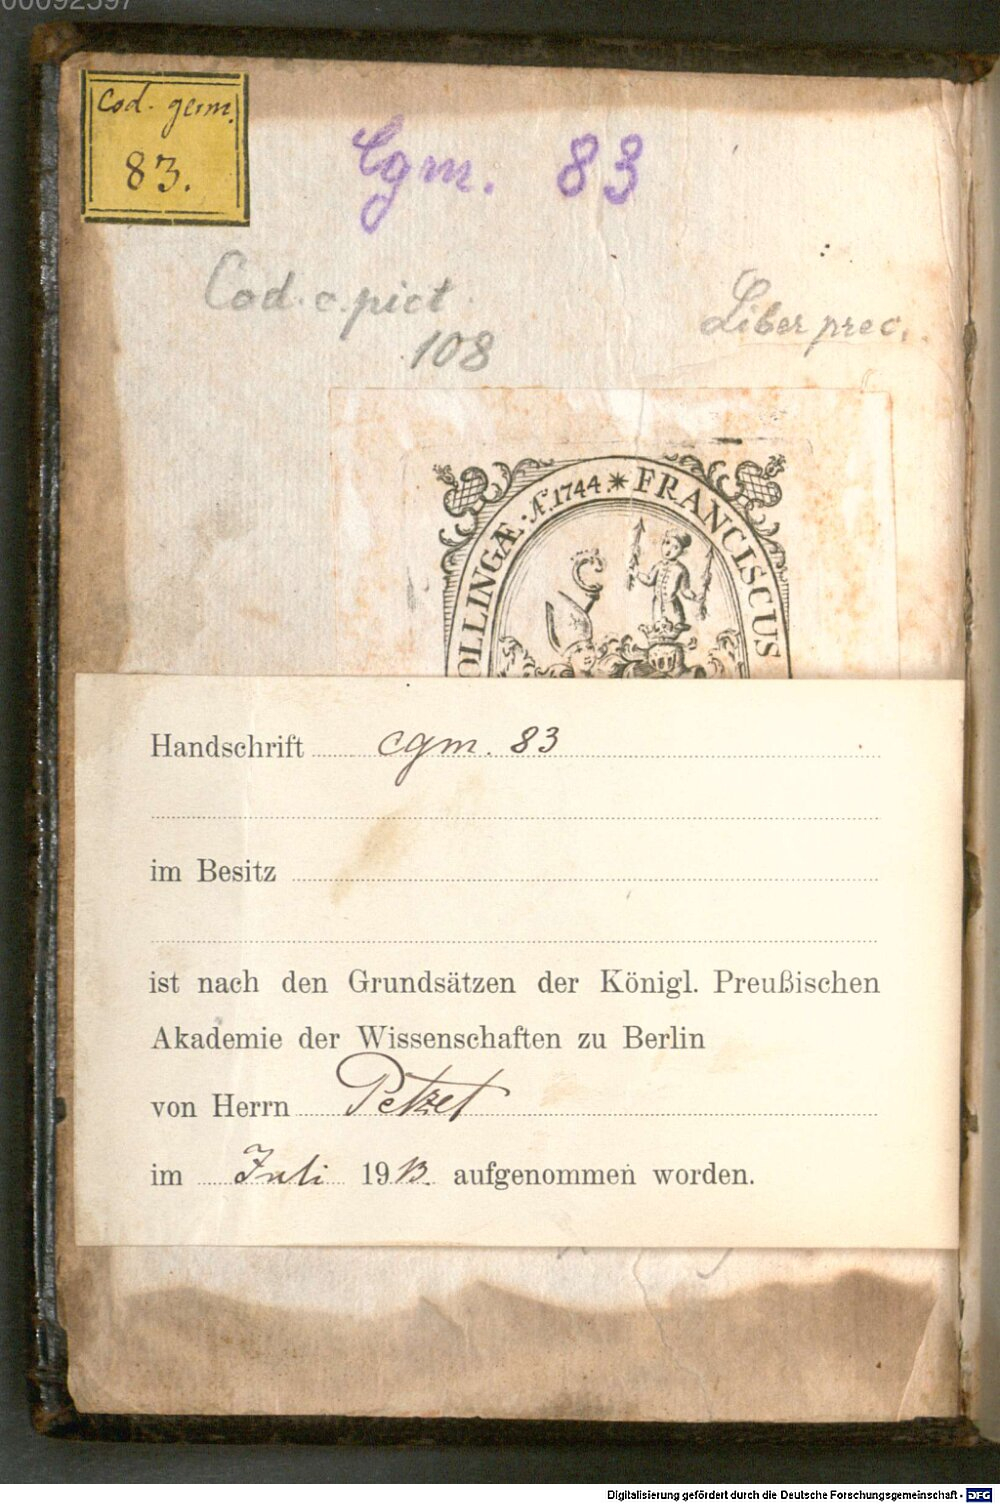 Cod. germ.
83.
Cgm. 83
Cod. c. pict
108
Liber prec.
OLLINGÆ · Aº. 1744 * FRANCISCUS
Handschrift cgm. 83
im Besitz
ist nach den Grundsätzen der Königl. Preußischen
Akademie der Wissenschaften zu Berlin
von Herrn Petzet
im Juli 1913. aufgenommen worden.
Digitalisierung gefördert durch die Deutsche Forschungsgemeinschaft - DFG